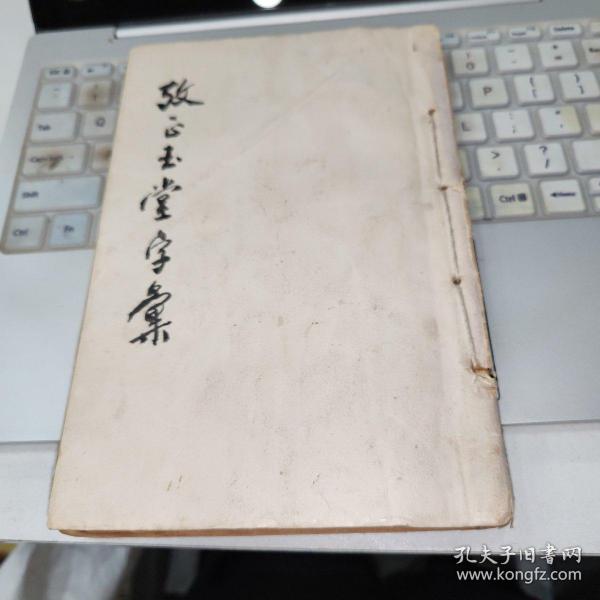 攷正玉堂字彙
Tab
Q
Shift
Ctrl
Fn
P
Ctrl
Delete
孔夫子旧书网
www.kongfz.com